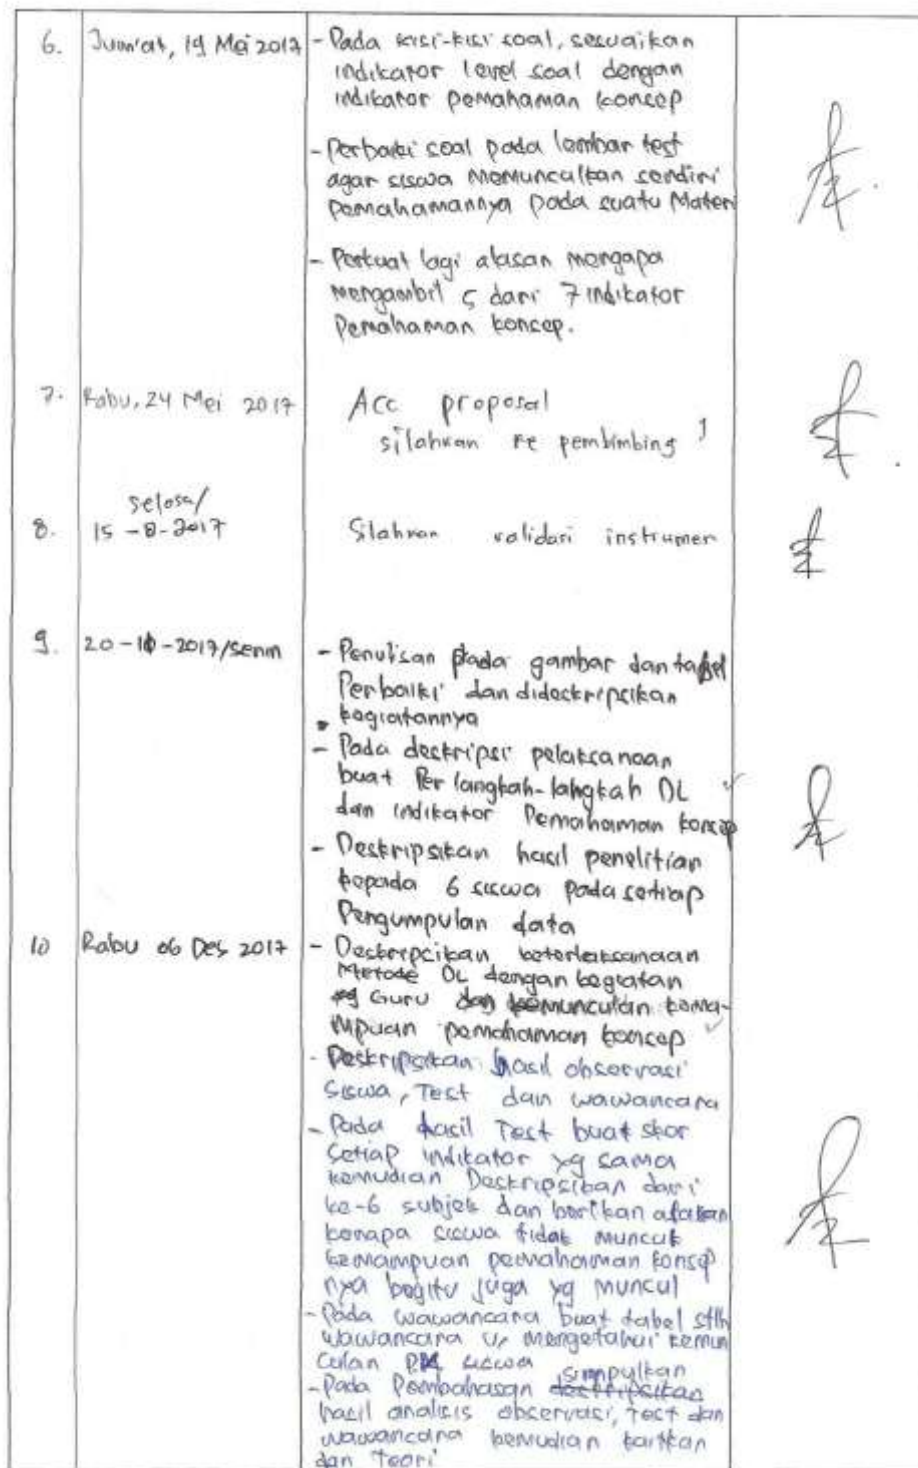 6. Jum'at, 19 Mei 2017 - Pada kisi-kisi soal, sesuaikan
indikator level soal dengan
indikator pemahaman konsep
- Perbaiki soal pada lembar test
agar siswa memunculkan sendiri
pemahamannya pada suatu Materi
- Perkuat lagi alasan mengapa
mengambil 5 dari 7 indikator
Pemahaman konsep.
7. Rabu, 24 Mei 2017 Acc proposal
silahkan ke pembimbing 1
Selasa/
8. 15-8-2017 Silahkan validasi instrumen
9. 20-10-2017/Senin - Penulisan pada gambar dan tabel
Perbaiki dan dideskripsikan
kegiatannya
- Pada deskripsi pelaksanaan
buat Per langkah-langkah DL
dan indikator Pemahaman konsep
- Deskripsikan hasil penelitian
kepada 6 siswa pada setiap
Pengumpulan data
10 Rabu 06 Des 2017 - Deskripsikan keterlaksanaan
Metode DL dengan kegiatan
yg Guru dan kemunculan kema-
mpuan pemahaman konsep
- Deskripsikan hasil observasi
siswa, Test dan wawancara
- Pada hasil Test buat skor
setiap indikator yg sama
kemudian Deskripsikan dari
ke-6 subjek dan berikan alasan
kenapa siswa tidak muncul
kemampuan pemahaman konsep
nya begitu juga yg muncul
- Pada wawancara buat tabel stlh
wawancara u/ mengetahui kemun
culan PK siswa
simpulkan
- Pada Pembahasan deskripsikan
hasil analisis observasi, test dan
wawancara kemudian kaitkan
dan Teori